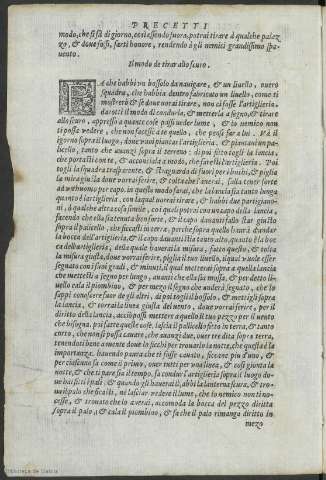 PRECETTI
modo, che si fà di giorno, così essendo fuora, potrai tirare à qualche palaz
zo, & doue fossi, farti honore, rendendo à gli nemici grandissimo spa-
uento.
Il modo de tirar allo scuro.
FA che habbi vn bossolo da nauigare, & vn liuello, ouero
squadra, che habbia dentro fabricato vn liuello, come ti
mostrerò & se doue vorai tirare, non ci fosse l'artigliera,
darotti il modo di condurla, & metterla à segno, & tirare
allo scuro, appresso à quante cose posson dar lume, & to nemico non
ti possa vedere, che non facessi cà te quello, che pensi far a lui. Và il
giorno sopra il luogo, doue vuoi piantar l'artigliera, & pianta vn pa-
licello, tanto che auanzi sopra il terreno; dipoi sicca lassù la lancia
che portasti con te, & acconciala à modo, che saresti l'artigliera. Poi
togli la squadra trasparente, & il traguardo di fuori per i brischi, & piglia
la mira giusta doue vorrai ferire, & colta che l'auerai, falla tener forte
ad vn'huomo per capo, in questo modo farai, che la lancia sia tanto lunga
quanto è l'artigliera, con laqual vorrai tirare, & habbi due partigiano-
ni, di qualche altra cosa simile, con queli potrai con vn capo della lancia,
facendo che essa sia tenuta ben forte, & il capo dauanti fallo star giusto
sopra il palicello, che ficcasti in terra, perche sopra quello hauerà d'andar
la bocca dell'artigliera, & il capo dauanti stia tanto alto, quanto fu la boc
ca dell'artigliera, della quale hauerai la misura, fatto questo, & colta
la misura giusta, doue vorrai ferire, piglia il tuo liuello, ilqual vuole esser
segnato con i suoi gradi, & minuti, il qual metterai sopra à quella lancia
che mettesti à segno per luogo, auanti che ella sia mossa, & per detto li-
uello cala il piombino, & per mezo il segno che anderà segnato, che lo
sappi conoscere fuor de gli altri, dipoi togli il bossolo, & mettigli sopra
la lancia, & corrai la linea giusta del vento, doue vorrai ferire, per il
diritto della lancia, acciò possi mettere à quello il tuo pezzo per il vento
che bisogna. poi fatte quelle cose, lascia il pallicello fitto in terra, & tanto
corto, che non si possi cauare, che auanzi due, ouer tre dita sopra terra,
tenendoti bene à mente doue lo ficchi per trouarlo la notte, che questa è la
importanza. hauendo paura che ti fosse cauato, ficcane piu d'vno, &
per ciascuno fa come il primo, ouer tutti per vna linea, & così gionta la
notte, & che ti pare sia il tempo, fa condur l'artigliera sopra il luogo do-
ue basti i ti pali: & quando gli hauerai lì, abbi la lanterna scura, & tro-
ua il palo che ficasti, nè lasciar vedere il lume, che lo nemico non ti no-
cesse, & trouato che lo auerai, accomoda la bocca del pezzo diritta
sopra il palo, & cala il piombino, & fa che il palo rimanga diritto in
mezo